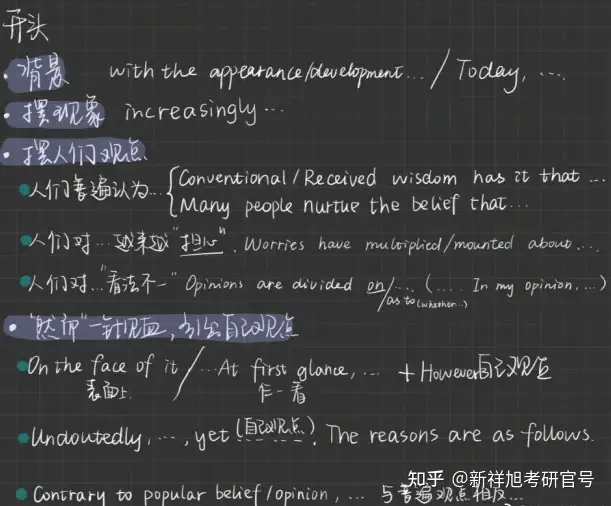 开头
· 背景 with the appearance/development... / Today, ...
· 摆现象 increasingly...
· 摆人们观点
人们普遍认为... { Conventional/Received wisdom has it that ...
Many people nurtue the belief that...
人们对...越来越"担心". Worries have multiplied/mounted about...
人们对..."看法不一" Opinions are divided on/... (... In my opinion, ...)
/as to (whether...)
· "然而"一针见血, 引出自己观点
On the face of it / ...At first glance, ... + However自己观点
表面上 乍一看
Undoutedly, ..., yet (自己观点). The reasons are as follows.
Contrary to popular belief/opinion, ... 与普遍观点相反...
知乎 @新祥旭考研官号